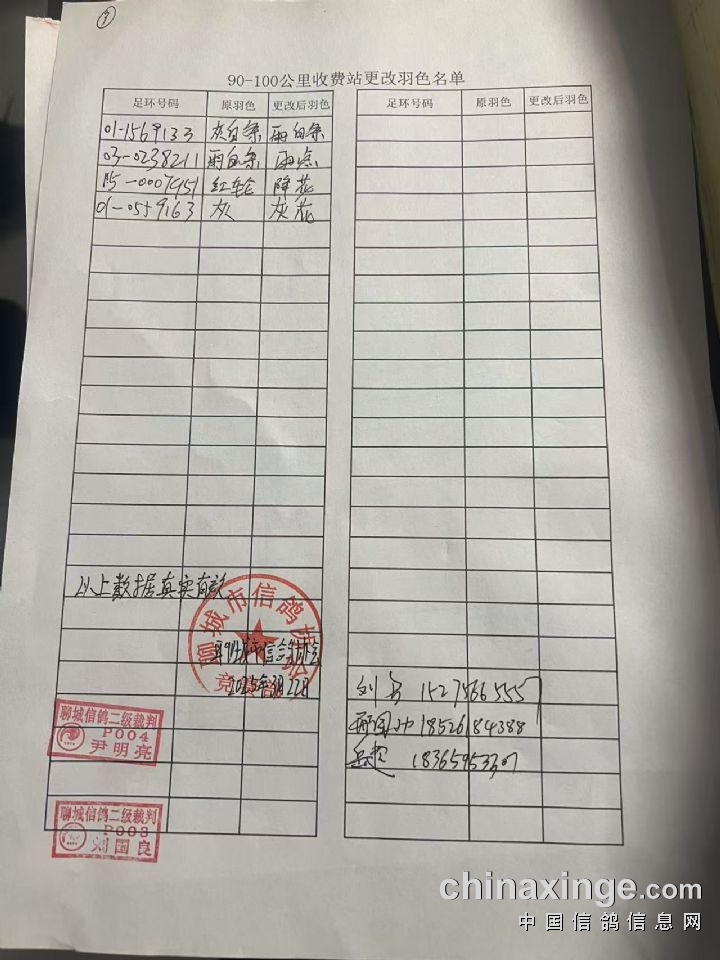 7
90-100公里收费站更改羽色名单
足环号码 原羽色 更改后羽色 足环号码 原羽色 更改后羽色
01-1569133 灰白条 雨白条
03-0238211 雨白条 雨点
15-0007951 红轮 降花
01-0559163 灰 灰花
以上数据真实有效
聊城市信鸽协会
聊城市信鸽协会
2025年3月22日
15275665557
18526184388
18365953307
聊城信鸽二级裁判
P004
尹明亮
聊城信鸽二级裁判
P003
刘国良
chinaxinge.com
中国信鸽信息网